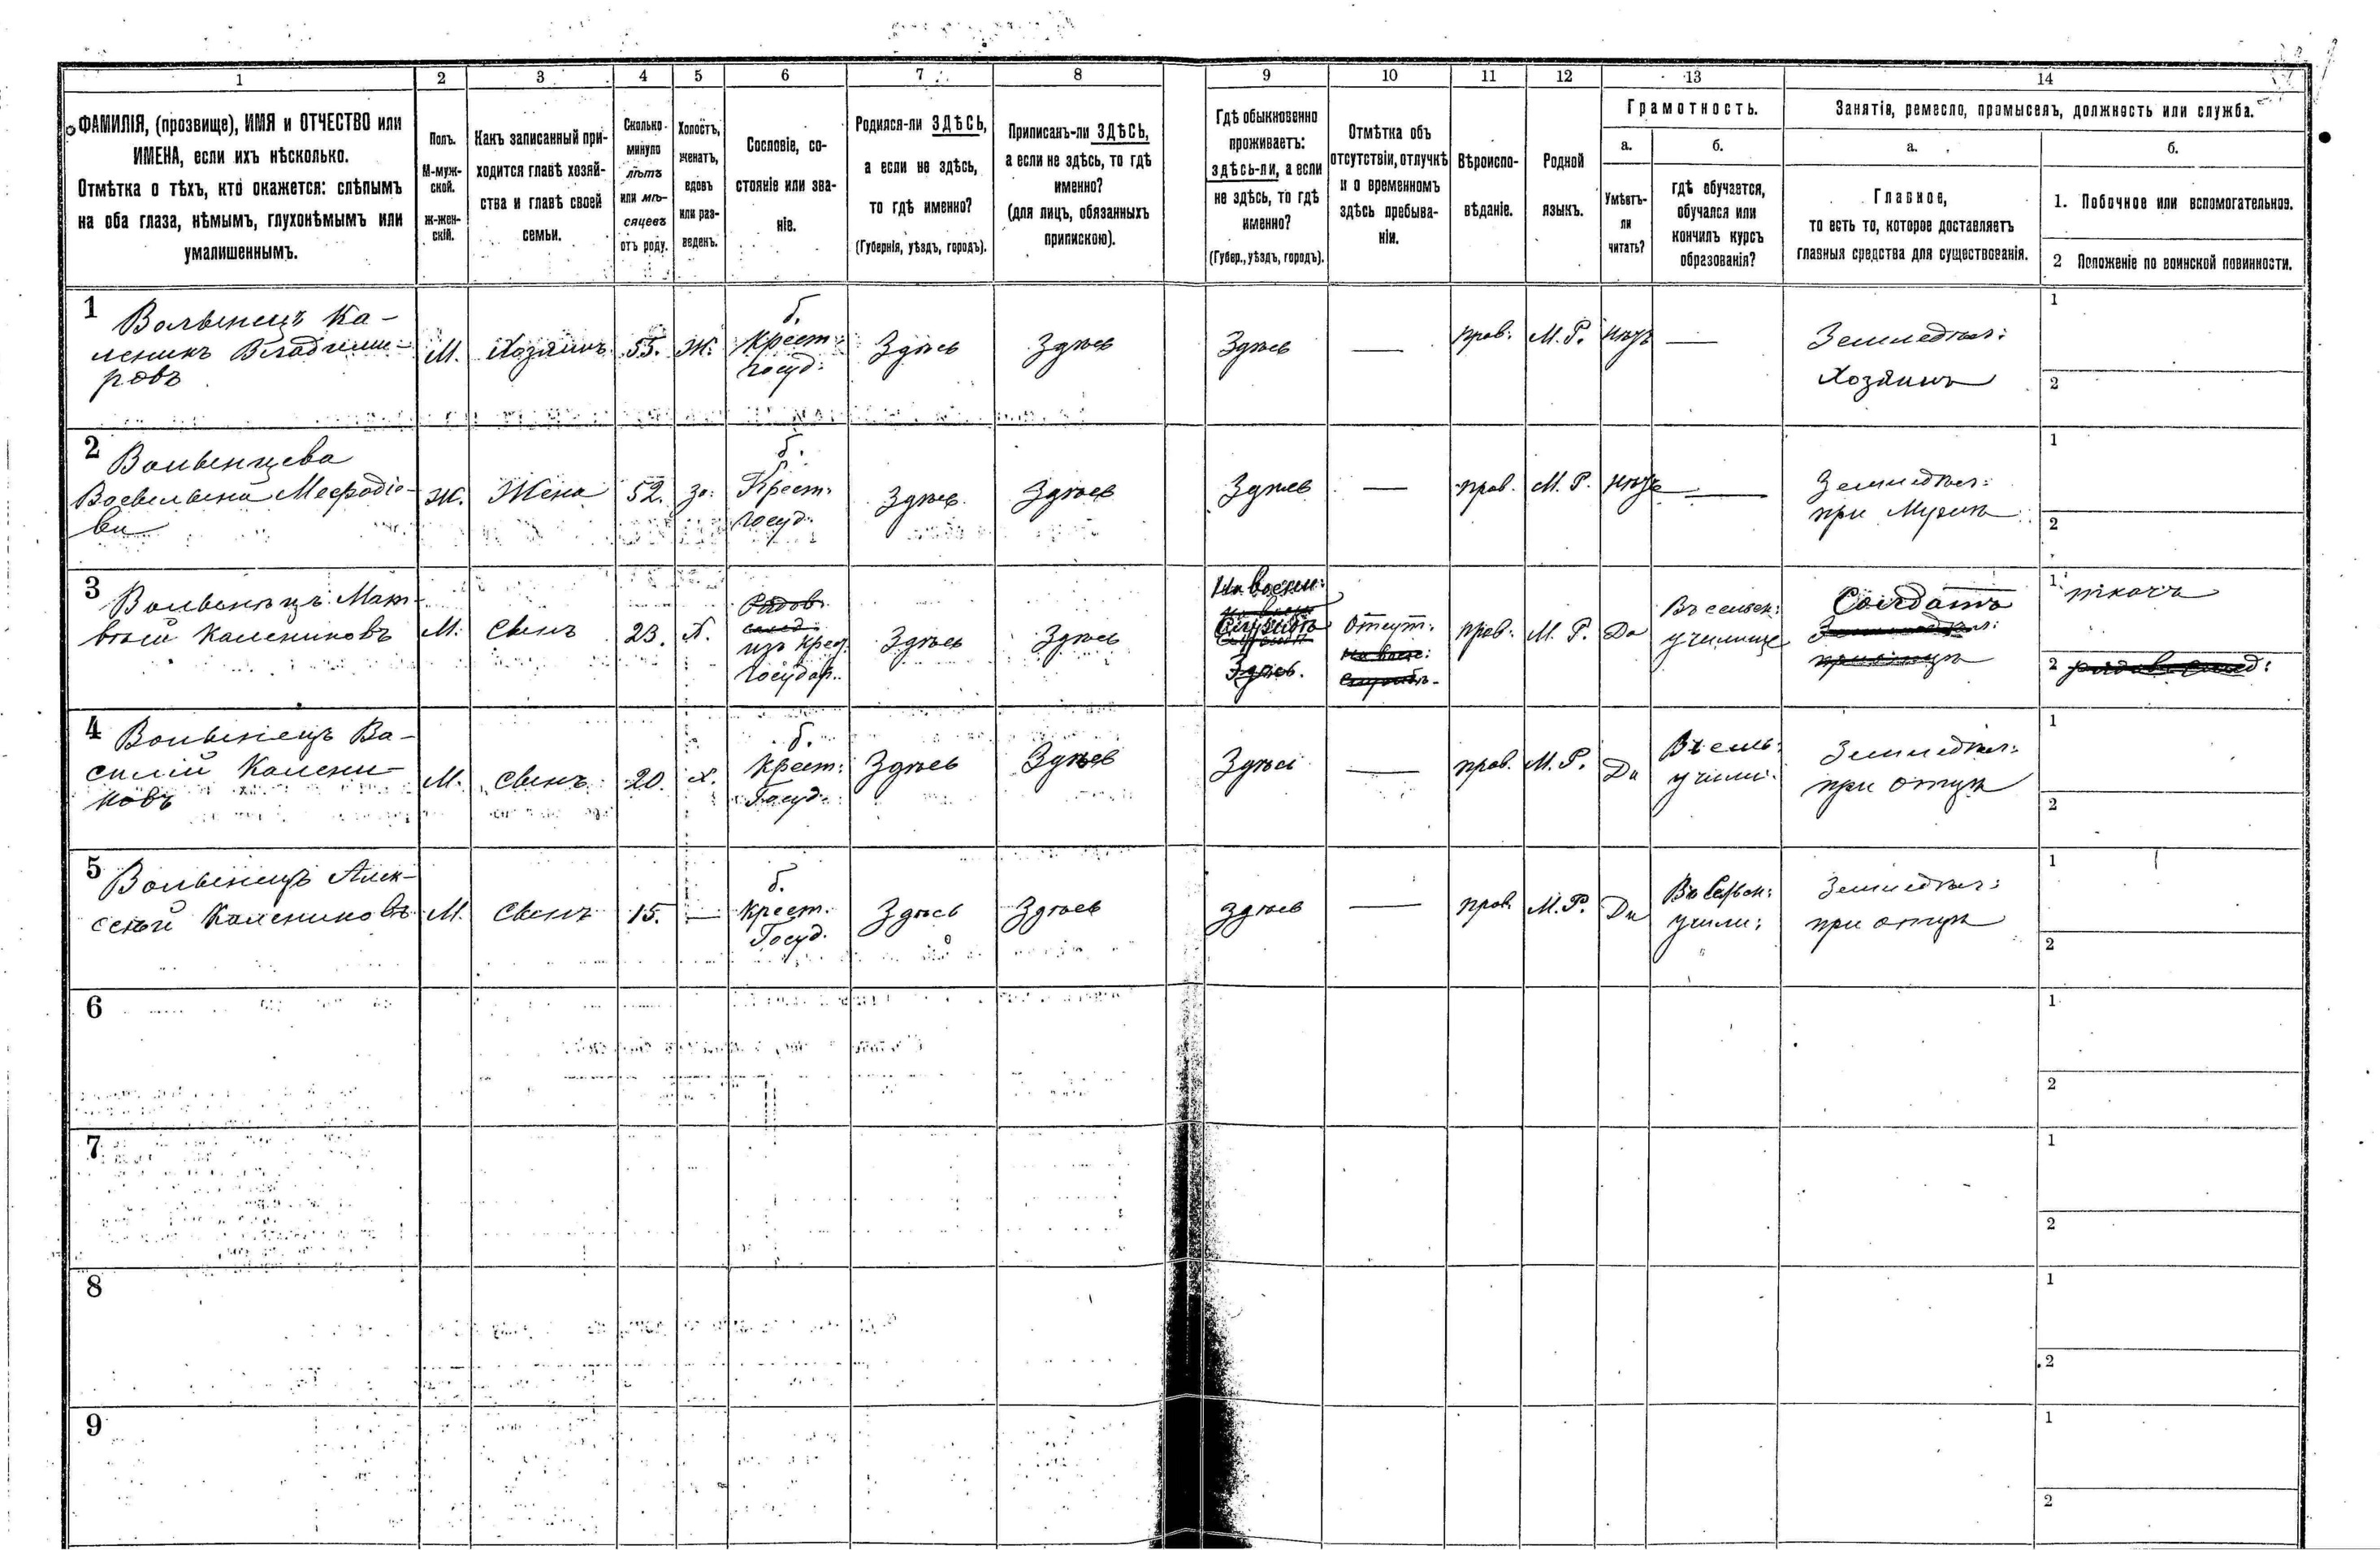 1 2 3 4 5 6 7 8 9 10 11 12 13 14
ФАМИЛІЯ, (прозвище), ИМЯ и ОТЧЕСТВО или
ИМЕНА, если ихъ нѣсколько.
Отмѣтка о тѣхъ, кто окажется: слѣпымъ
на оба глаза, нѣмымъ, глухонѣмымъ или
умалишеннымъ.
Полъ.
М-муж-
ской.
ж-жен-
скій.
Какъ записанный при-
ходится главѣ хозяй-
ства и главѣ своей
семьи.
Сколько
минуло
лѣтъ
или мѣ-
сяцевъ
отъ роду.
Холостъ,
женатъ,
вдовъ
или раз-
веденъ.
Сословіе, со-
стояніе или зва-
ніе.
Родился-ли ЗДѢСЬ,
а если не здѣсь,
то гдѣ именно?
(Губернія, уѣздъ, городъ).
Приписанъ-ли ЗДѢСЬ,
а если не здѣсь, то гдѣ
именно?
(для лицъ, обязанныхъ
припискою).
Гдѣ обыкновенно
проживаетъ:
здѣсь-ли, а если
не здѣсь, то гдѣ
именно?
(Губер., уѣздъ, городъ).
Отмѣтка объ
отсутствіи, отлучкѣ
и о временномъ
здѣсь пребыва-
ніи.
Вѣроиспо-
вѣданіе.
Родной
языкъ.
Грамотность.
а.
Умѣетъ-
ли
читать?
б.
гдѣ обучается,
обучался или
кончилъ курсъ
образованія?
Занятіе, ремесло, промыселъ, должность или служба.
а.
Главное,
то есть то, которое доставляетъ
главныя средства для существованія.
б.
1. Побочное или вспомогательное.
2 Положеніе по воинской повинности.
1
Волынецъ Ка-
леникъ Владими-
ровъ
М.
Хозяинъ
55.
Ж.
б.
Крест:
Госуд:
Здѣсь
Здѣсь
Здѣсь
—
прав:
М. Р.
нѣтъ
—
Земледѣл:
Хозяинъ
1
2
2
Волынцева
Мефодіе-
ва
ж.
Жена
52.
за:
б.
Крест:
Госуд:
Здѣсь
Здѣсь
Здѣсь
—
прав.
М. Р.
нѣтъ
—
Земледѣл:
при Мужѣ
1
2
3
Волынецъ Мат-
вѣй Калениковъ
М.
Сынъ
23.
Х.
Рядов.
изъ Крест.
Государ.
Здѣсь
Здѣсь
На воен:
Службѣ
Здѣсь.
Отсут:
На воен:
Службѣ.
прав:
М. Р.
Да
Въ сельск:
училище
Солдатъ
Земледѣл:
при отцѣ
1 ткачъ
2
4
Волынецъ Ва-
силій Калени-
ковъ
М.
Сынъ
20.
х.
б.
Крест:
Госуд.
Здѣсь
Здѣсь
Здѣсь
—
прав.
М. Р.
Да
Въ сель:
учили:
Земледѣл:
при отцѣ
1
2
5
Волынецъ Алек-
сѣй Калениковъ
М.
Сынъ
15.
—
б.
Крест.
Госуд.
Здѣсь
Здѣсь
Здѣсь
—
прав.
М. Р.
Да
Въ Сельск:
учили:
Земледѣл:
при отцѣ
1
2
6
1
2
7
1
2
8
1
2
9
1
2